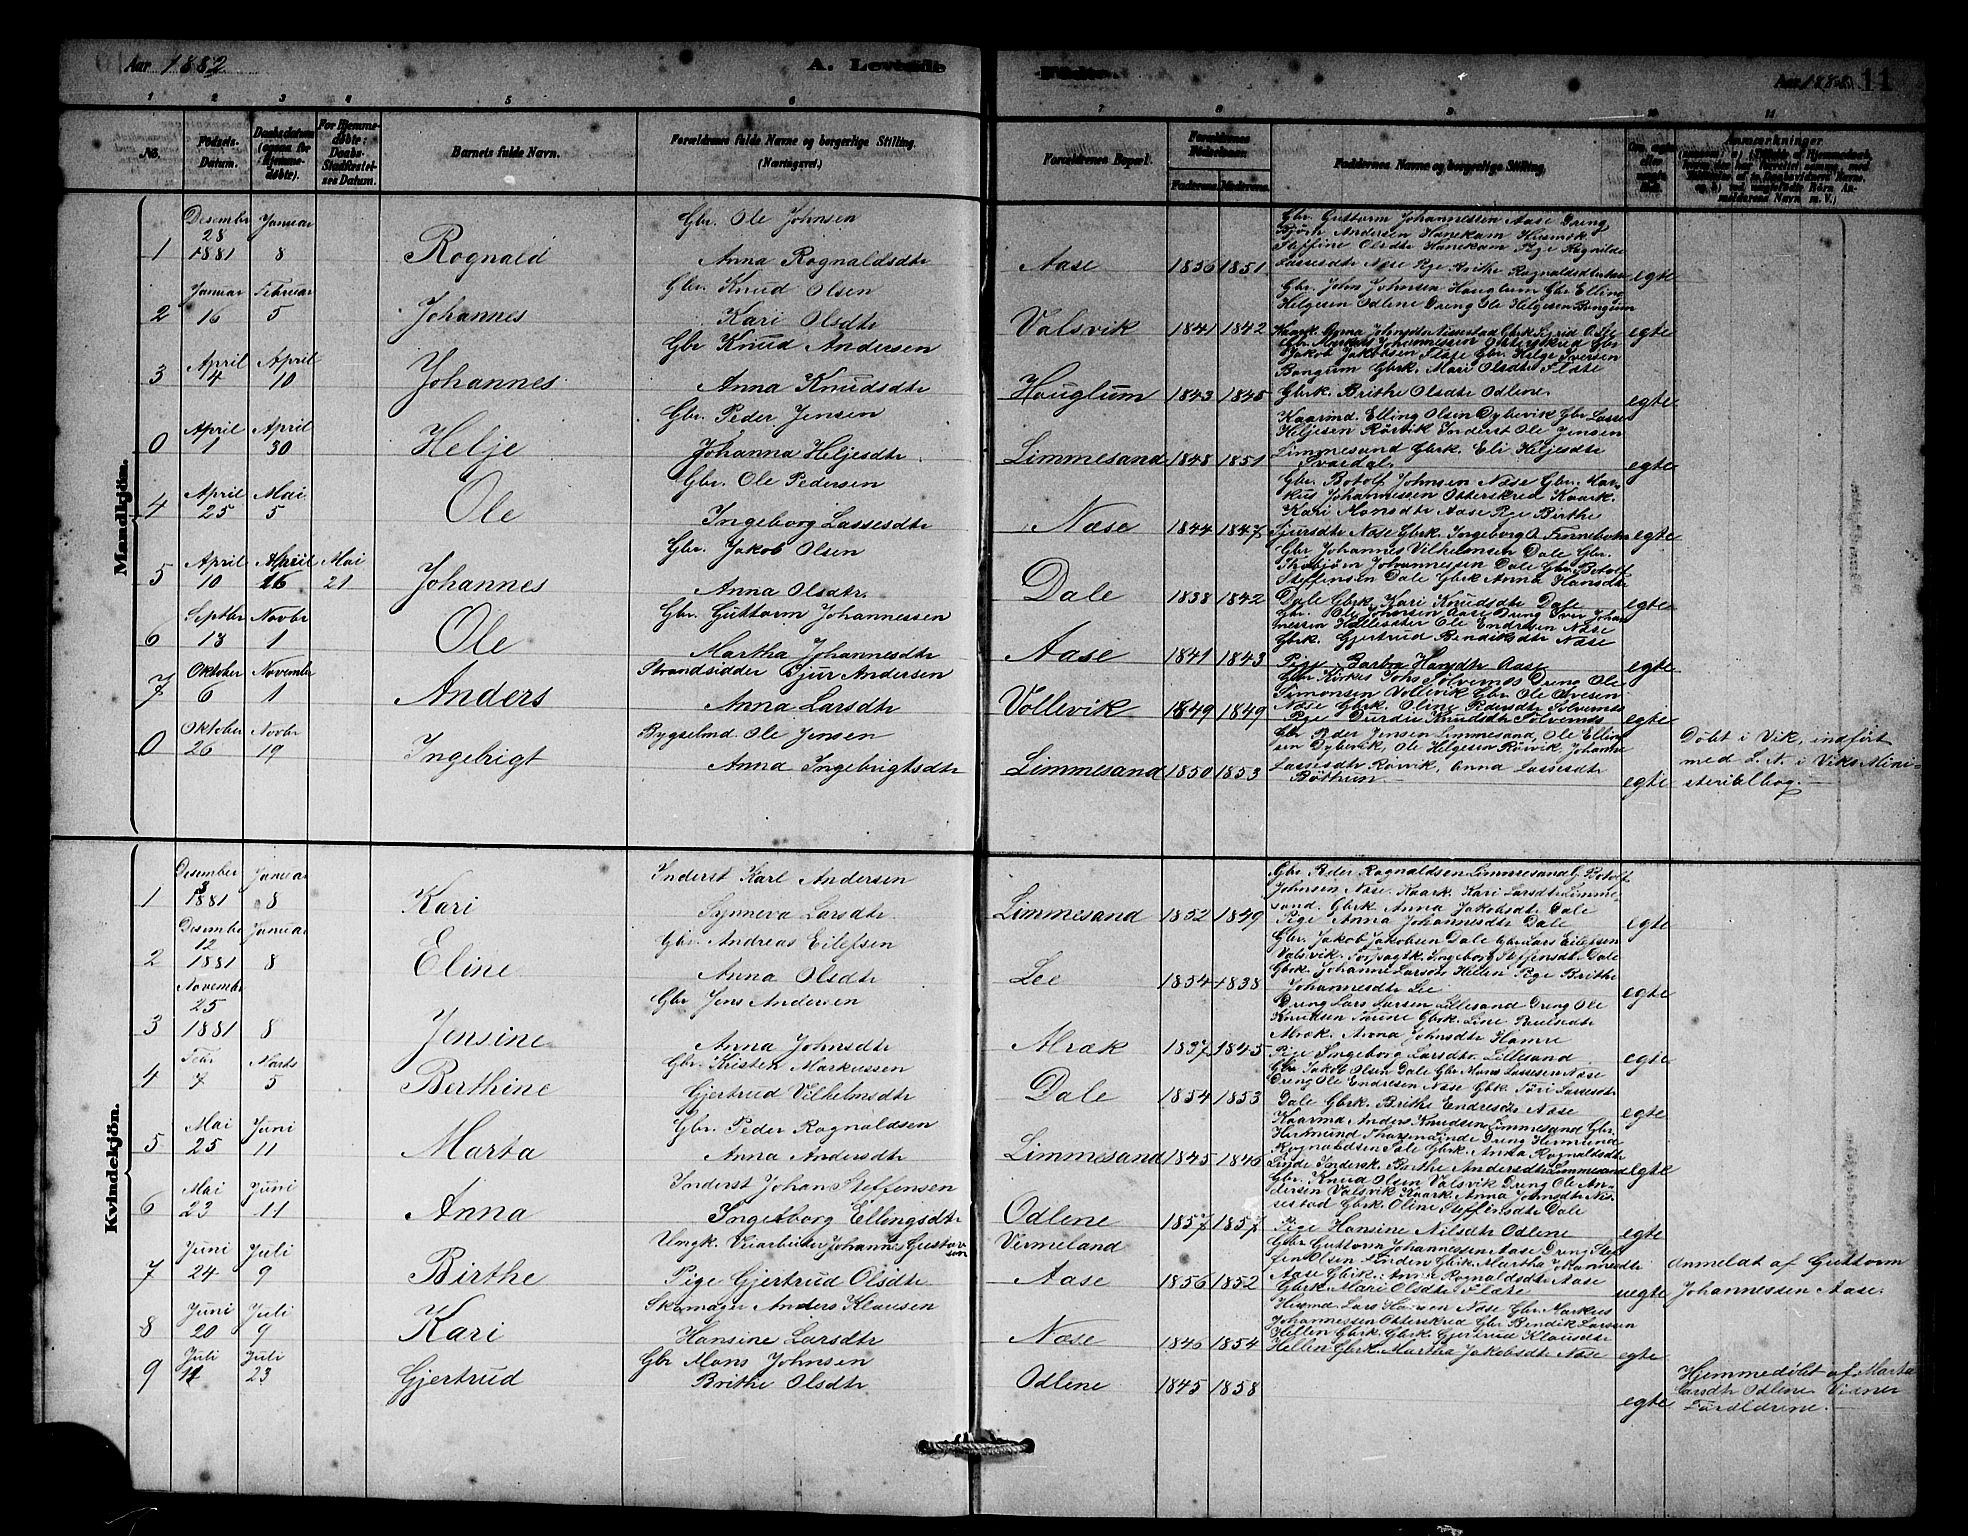 Aar 1882
A. Levende
Fødte.
Aar 1882. 11
1 2 3 4 5 6 7 8 9 10 11
No.
Fødsels-
Datum.
Daabsdatum
(ogsaa for
Hjemme-
døbte).
For Hjemme-
døbte:
Daabs-
Stadfæstel-
ses Datum.
Barnets fulde Navn.
Forældrenes fulde Navne og borgerlige Stilling.
(Næringsvei.)
Forældrenes Bopæl.
Forældrenes
Fødselsaar.
Faderens. Moderens.
Faddernes Navne og borgerlige Stilling.
Om ægte
eller
uægte
født.
Anmærkninger
Mandkjøn.
1 Desember 28 1881 Januar 8 Rognald
Gbr. Ole Johnsen
Anna Rognaldsdtr
Aase 1856 1851
Gbr. Guttorm Johannessen Aase Dreng
Bjørn Andersen Hanekam Husmok
Steffine Olsdtr Hanekam Pige Rognilde
Lassesdtr Næse Pige Brithe Rognaldsdtr Aase
egte
2 Januar 16 Februar 5 Johannes
Gbr. Knud Olsen
Kari Olsdtr
Valsvik 1841 1842
Gbr. John Johnsen Houglum Gbr. Elling
Helgesen Odlene Dreng Ole Helgesen Bongum
Anna Johnsdtr Nissestad Gbrk.
egte
3 April 4 April 10 Johannes
Gbr Knud Andersen
Anna Knudsdtr
Houglum 1843 1845
Gbr. Markus Johannessen Otterskred Gbr
Jakob Jakobsen Flåte Gbr. Helge Iversen
Bongum Gbrk. Mari Olsdtr Flåte
Gbrk. Brithe Olsdtr Odlene
egte
0 April 1 April 30 Helje
Gbr. Peder Jensen
Johanna Heljesdtr
Limmesand 1848 1851
Kaarmd. Elling Olsen Dybevik Gbr Lasse
Heljesen Rørvik Inderst Ole Jensen
Limmesand Gbrk. Eli Heljesdtr
Svardal
egte
4 April 25 Mai 5 Ole
Gbr. Ole Pedersen
Ingeborg Lassesdtr
Næse 1844 1847
Gbr. Botolf Johnsen Næse Gbr. Mar-
kus Johannessen Otterskred Kaark.
Kari Monsdtr Aase Pige Birthe
Sjursdtr Næse Gbrk. Ingeborg O. Finnebotn
egte
5 April 10 April 16 Mai 21 Johannes
Gbr. Jakob Olsen
Anna Olsdtr
Dale 1838 1842
Gbr Johannes Vilhelmsen Dale Gbr.
Thorbjørn Johannessen Dale Gbr. Botolf
Steffensen Dale Gbrk Anna Hansdtr
Dale Gbrk. Kari Knudsdtr Dale
egte
6 Septbr 13 Novbr 1 Ole
Gbr. Guttorm Johannessen
Martha Johannesdtr
Aase 1841 1843
Gbr. Ole Johnsen Aase Dreng Iver Johan
nessen Hellesæter Ole Endresen Næse
Gbrk. Gjertrud Bendiksdtr Næse
Pige Barbra Hansdtr Aase
egte
7 Oktober 6 November 1 Anders
Strandsidder Sjur Andersen
Anna Larsdtr
Vollevik 1849 1849
Dreng Ole
Simonsen Vollevik Gbr Ole Olvesen
Næse Gbrk. Oline Pedersdtr Solvernes
Pige Durdei Knudsdtr Solvernes
egte
0 Oktober 26 Novbr 19 Ingebrigt
Bygselmd. Ole Jensen
Anna Ingebrigtsdtr
Limmesand 1850 1853
Gbr Peder Jensen Limmesand, Ole Ellin-
sen Dybevik, Ole Helgesen Rörvik, Johanne
Lassesdtr Rörvik, Anna Lassesdtr
Böttun
egte
Døbt i Vik, indført
med L. N. i Viks Mini-
sterialbog.
Kvindekjön.
1 Desember 3 1881 Januar 8 Kari
Inderst Karl Andersen
Synneva Larsdtr
Limmesand 1852 1849
Gbr Peder Rognaldsen Limmesand G. Botolf
Johnsen Næse Kaark. Kari Larsdtr Limme-
sand. Gbrk Anna Jakobsdtr Dale
Pige Anna Johannesdtr Dale
egte
2 Desember 12 1881 Januar 8 Eline
Gbr. Andreas Eilefsen
Anna Olsdtr
Lee 1854 1838
Gbr. Jakob Jakobsen Dale Gbr Lars Eilefsen
Valsvik. Ingeborg Steffensdtr Dale
Gbrk. Johanne Larsdtr Hellen Pige Brithe
Johannesdtr Lee
egte
3 November 25 1881 8 Jensine
Gbr Jens Andersen
Anna Johnsdtr
Alræk 1837 1845
Dreng Lars Larsen Lillesand Dreng Ole
Knudsen Gbrk. Line Paulsdtr
Alræk. Anna Johnsdtr Hamre
Pige Ingeborg Larsdtr. Lillesand
egte
4 Febr 7 Marts 5 Berthine
Gbr. Kristen Markussen
Gjertrud Vilhelmsdtr
Dale 1854 1853
Gbr Jakob Olsen Dale Gbr Mons Lassesen Næse
Dreng Ole Endresen Næse Gbk Töri Larsesdtr
Dale Gbrk. Brithe Endresdtr Næse
egte
5 Mai 25 Juni 11 Marta
Gbr. Peder Rognaldsen
Anna Andersdtr
Limmesand 1845 1846
Kaarmd Anders Knudsen Limmesand Gbr.
Hermund Linde Dreng Hermund
Rognaldsen Gbrk. Anna Rognaldsdtr
Linde Indersk. Barthe Andersdtr Limmesand
egte
6 Mai 23 Juni 11 Anna
Inderst Johan Steffensen
Ingeborg Ellingsdtr
Odlene 1857 1857
Gbr. Knud Olsen Valsvik Dreng Ole An-
dersen Valsvik Kaark. Anna Johnsdtr Nis-
sestad Gbrk. Oline Steffensdtr Dale
Pige Hansine Nilsdtr Odlene
egte
7 Juni 24 Juli 9 Birthe
Ungk. Veiarbeider Johannes Gustav-
son
Pige Gjertrud Olsdtr
Vermeland
Aase 1856 1852
Gbr Guttorm Johannessen Aase Dreng Stef-
fen Olsen Finden Gbrk. Martha Johannesdtr
Aase Gbrk. Anna Rognaldsdtr Aase
Gbrk. Mari Olsdtr Flåte
uegte
Anmeldt af Guttorm
Johannessen Aase.
8 Juni 20 Juli 9 Kari
Skomager Anders Klausen
Hansine Larsdtr
Næse 1846 1854
Husmd Lars Hansen Næse Gbr. Markus
Johannessen Otterskred Gbr Bendik Larssen
Hellen Gbrk. Gbrk. Gjertrud Klausdtr
Hellen Gbrk. Martha Jakobsdtr Næse
egte
9 Juli Juli 23 Gjertrud
Gbr Mons Johnsen
Brithe Olsdtr
Odlene 1845 1858
egte
Hjemmedøbt af Marta
Larsdtr Odlene. Vidner
Forældrene.